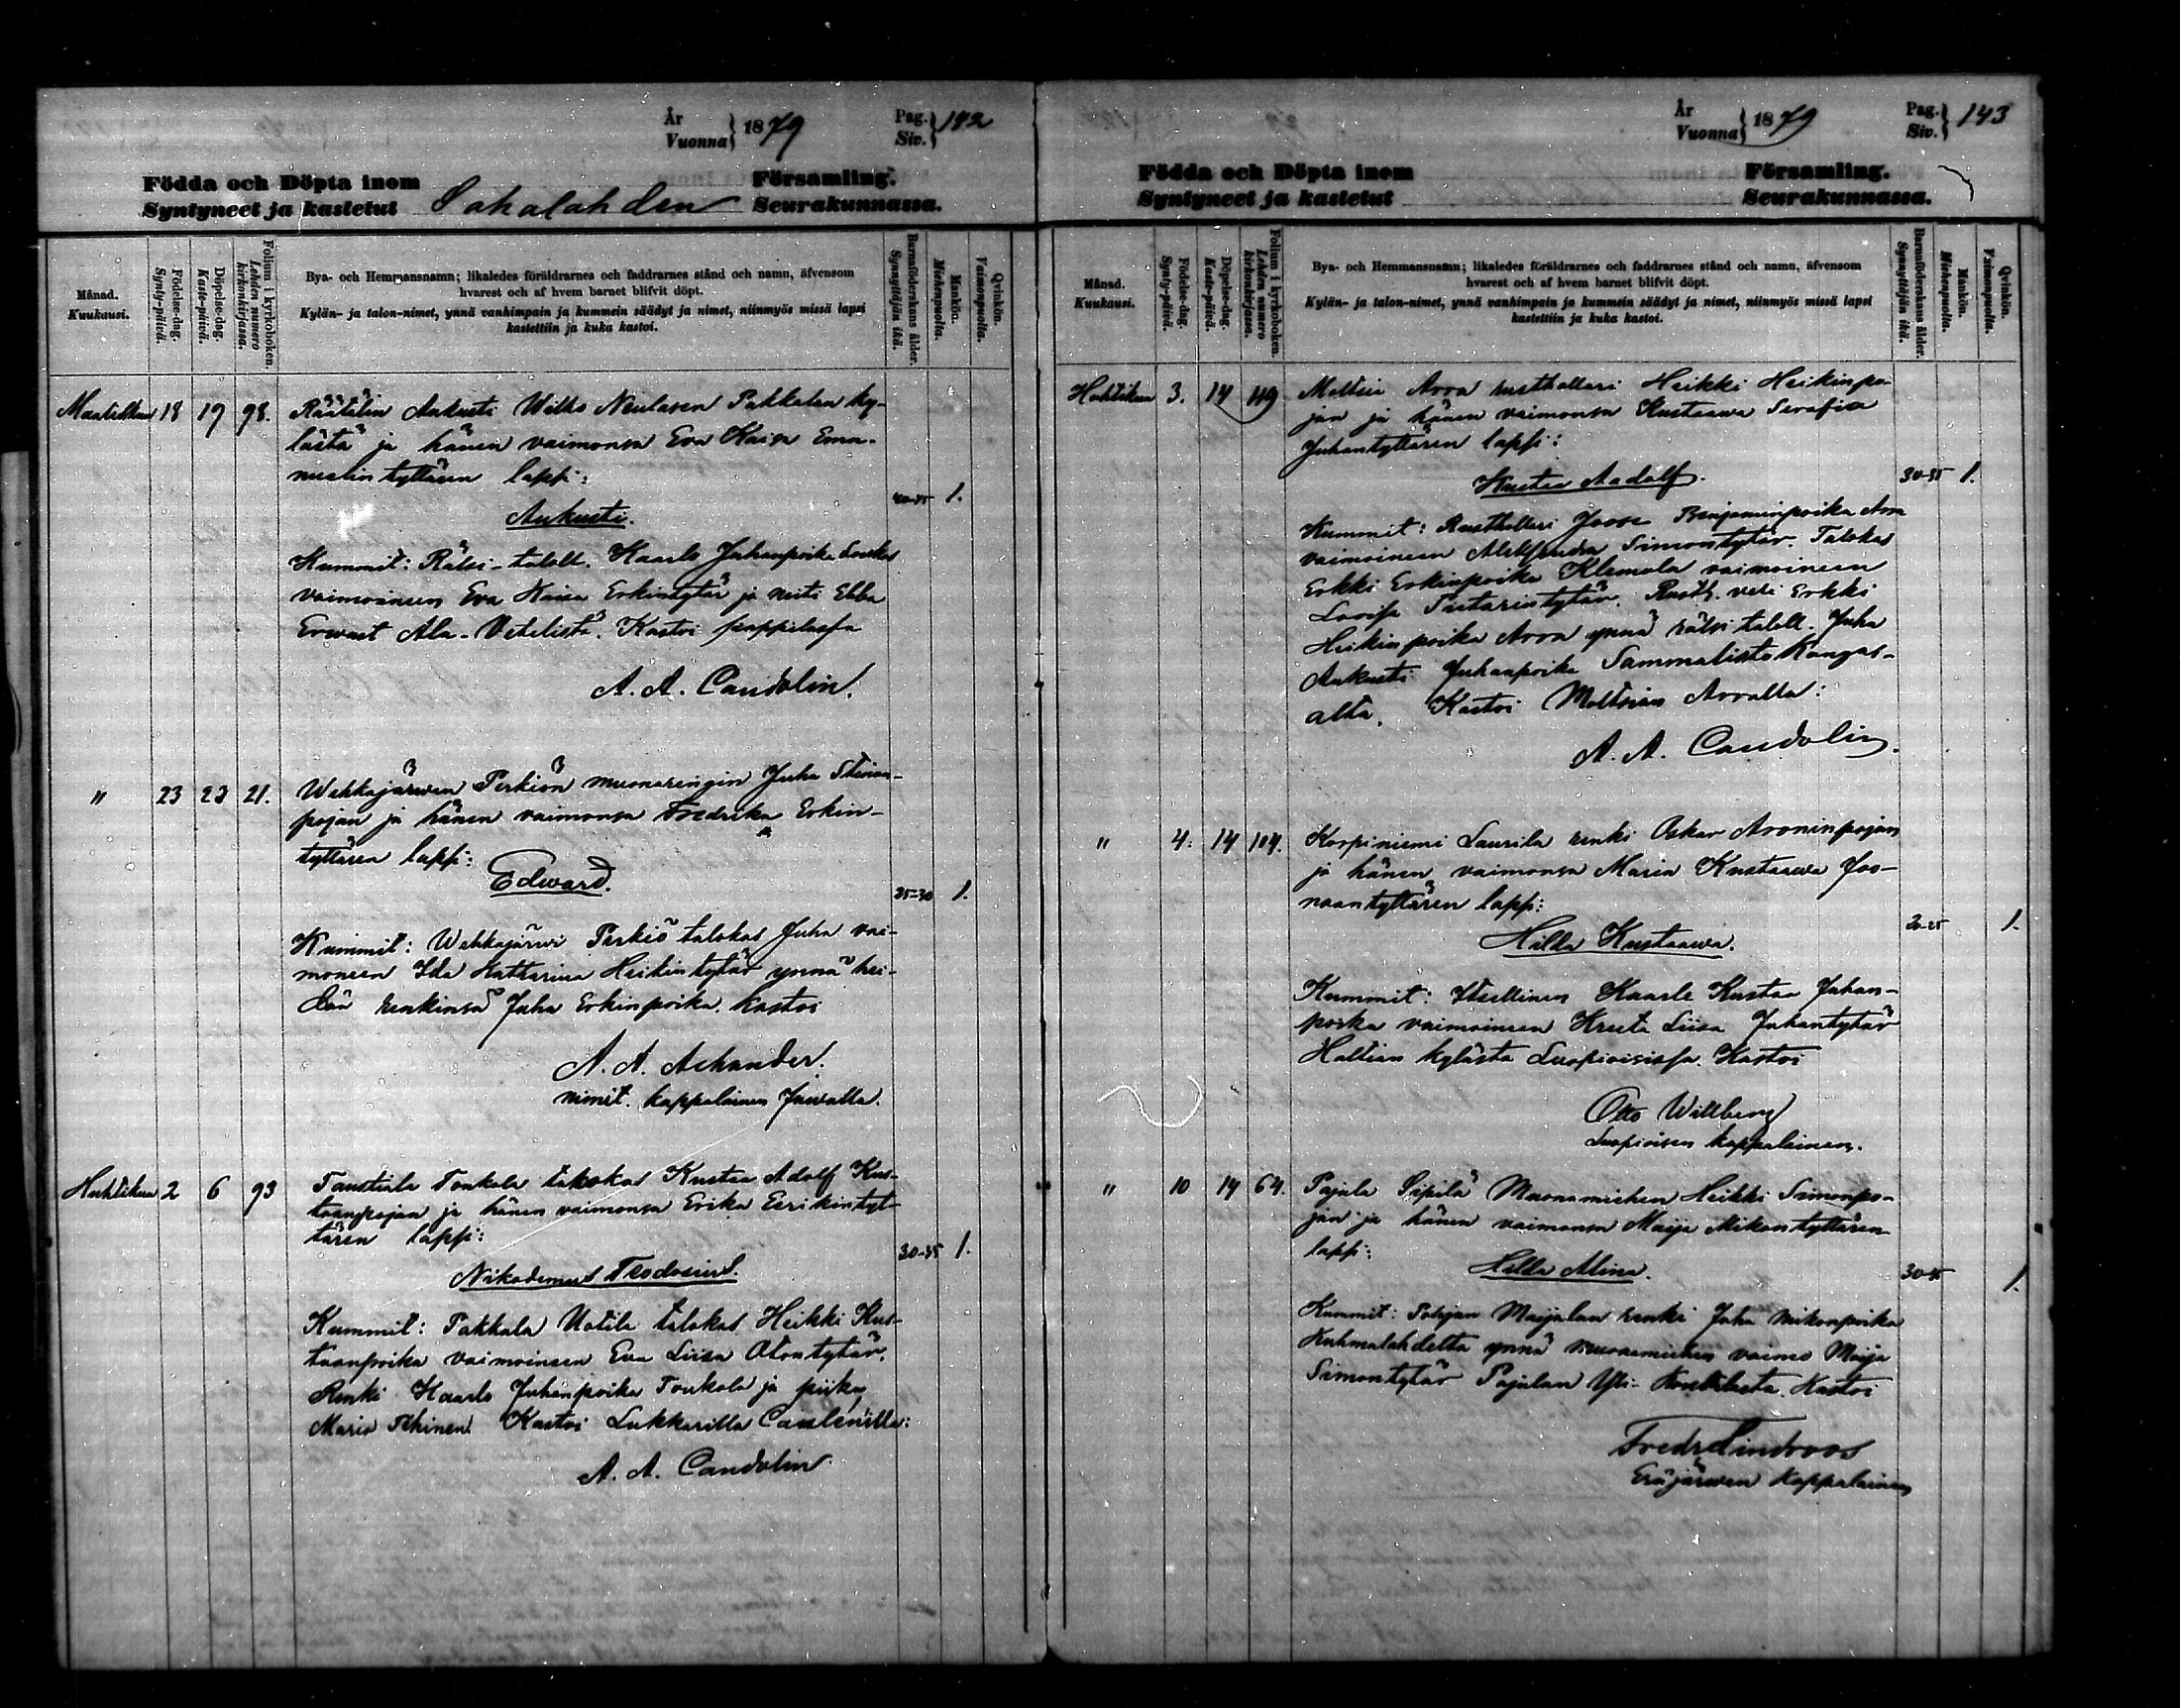 År
Vuonna } 1879
Pag.
Siv. } 142
Födda och Döpta inom Församling.
Syntyneet ja kastetut Sahalahden Seurakunnassa.
Månad.
Kuukausi.
Födelse-dag.
Synty-päivä.
Döpelse-dag.
Kaste-päivä.
Folium i kyrkoboken.
Lehden numero kirkonkirjassa.
Bya- och Hemmansnamn; likaledes föräldrarnes och faddrarnes stånd och namn, äfvensom
hvarest och af hvem barnet blifvit döpt.
Kylän- ja talon-nimet, ynnä vanhimpain ja kummein säädyt ja nimet, niinmyös missä lapsi
kastettiin ja kuka kastoi.
Barnaföderskans ålder.
Synnyttäjän ikä.
Mankön.
Miehenpuolta.
Qvinkön.
Vaimonpuolta.
Maaliskuu 18 19 98. Räätälin Aukusti Wilho Neulasen Pakkalan ky-
lästä ja hänen vaimonsa Eva Kaisa Ema-
nuelin tyttären lapsi:
40-45 1.
Aukusti.
Kummit: Rälsi-taloll. Kaarlo Juhanpoika
vaimoineen Eva Kaisa Erkintytär ja neiti Ebba
Ervast Ala-Vetelistä. Kastoi pappilassa
A. A. Candolin.
" 23 23 21. Wehkajärwen Perkiön muonarengin Juha
pojan ja hänen vaimonsa Fredrika Erkin-
tyttären lapsi:
Edward.
25-30 1.
Kummit: Wehkajärwi Perkiö talokas Juha vai-
moneen Ida Kattarina Heikintytär ynnä hei-
dän renkinsä Juha Erkinpoika. Kastoi
A. A. Achander.
nimit. kappalainen
Huhtikuu 2 6 93 Taustiala Toukola talokas Kustaa Adolf Kus-
taanpojan ja hänen vaimonsa Erika Eerikintyt-
tären lapsi:
30-35 1.
Nikodemus Teodosius.
Kummit: Pakkala Uotila talokas Heikki Kus-
taanpoika vaimoinsen Eva Liisa Otontytär.
Renki Kaarlo Juhanpoika Toukola ja piika
Maria Kastoi Lukkarilla
A. A. Candolin
År
Vuonna } 1879
Pag.
Siv. } 143
Födda och Döpta inom Församling.
Syntyneet ja kastetut Seurakunnassa.
Månad.
Kuukausi.
Födelse-dag.
Synty-päivä.
Döpelse-dag.
Kaste-päivä.
Folium i kyrkoboken.
Lehden numero kirkonkirjassa.
Bya- och Hemmansnamn; likaledes föräldrarnes och faddrarnes stånd och namn, äfvensom
hvarest och af hvem barnet blifvit döpt.
Kylän- ja talon-nimet, ynnä vanhimpain ja kummein säädyt ja nimet, niinmyös missä lapsi
kastettiin ja kuka kastoi.
Barnaföderskans ålder.
Synnyttäjän ikä.
Mankön.
Miehenpuolta.
Qvinkön.
Vaimonpuolta.
Huhtikuu 3. 14 119 Moltsia Arra rusthollari Heikki Heikinpo-
jan ja hänen vaimonsa Kustaawa Serafia
Juhantyttären lapsi:
Kustaa Aadolf.
30-35 1.
Kummit: Rusthollari Joose Benjaminpoika Arra
vaimoineen Aleksandra Simontytär. Talokas
Erkki Erkinpoika Klemola vaimoineen
Lovisa Pietarintytär. Rusth. veli Erkki
Heikinpoika Arra ynnä rälsi taloll. Juha
Aukusti Juhanpoika Sammalisto Kangas-
alta. Kastoi Moltsian Arralla:
A. A. Candolin.
" 4. 14 104. Korpiniemi Laurila renki Oskar Aroninpojan
ja hänen vaimonsa Maria Kustaawa Joo-
naantyttären lapsi:
20-25 1.
Hilda Kustaawa.
Kummit: Itsellinen Kaarle Kustaa Juhan-
poika vaimoinsen Kreeta Liisa Juhantytär
Haltian kylästä Luopioisissa. Kastoi
Otto Willberg
Luopioisen kappalainen.
" 10 14 64. Pajula Sipilä Muonamiehen Heikki Simonpo-
jan ja hänen vaimonsa Maija Mikontyttären
lapsi:
Hilda Alina.
1.
Kummit: Pohjan Maijalan renki Juha Mikonpoika
Kuhmalahdelta ynnä muonamiehen vaimo Maija
Simontytär Pajulan Yli- Kastoi
Fredr Lindroos
Eräjärwen Kappalainen